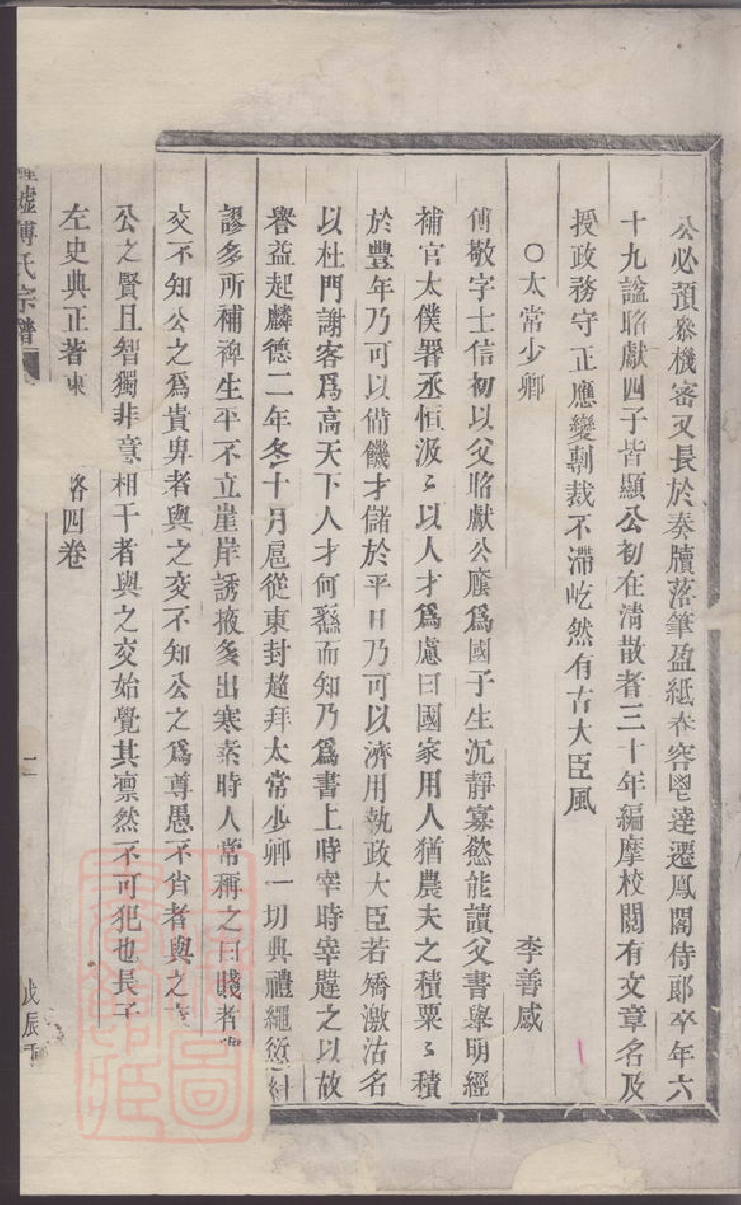 公必預叅機密又長於奏牘落筆盈紙春容鬯達遷鳳閣侍郎卒年六
十九謚昭獻四子皆顯公初在清散者三十年編摩校閱有文章名及
授政務守正應變剸裁不滯屹然有古大臣風
○太常少卿
李善感
傅敬字士信初以父昭獻公廕爲國子生沉靜寡慾能讀父書舉明經
補官太僕署丞恒汲〻以人才爲慮曰國家用人猶農夫之積粟〻積
於豐年乃可以備饑才儲於平日乃可以濟用執政大臣若矯激沽名
以杜門謝客爲高天下人才何繇而知乃爲書上時宰時宰韙之以故
譽益起麟德二年冬十月扈從東封趨拜太常少卿一切典禮繩愆糾
謬多所補裨生平不立崖岸誘掖多出寒素時人常稱之曰賤者與之
交不知公之爲貴卑者與之交不知公之爲尊愚不肖者與之交
公之賢且智獨非意相干者與之交始覺其凛然不可犯也長子
左史典正著東 畧四卷
墟傅氏宗譜
二
戊辰